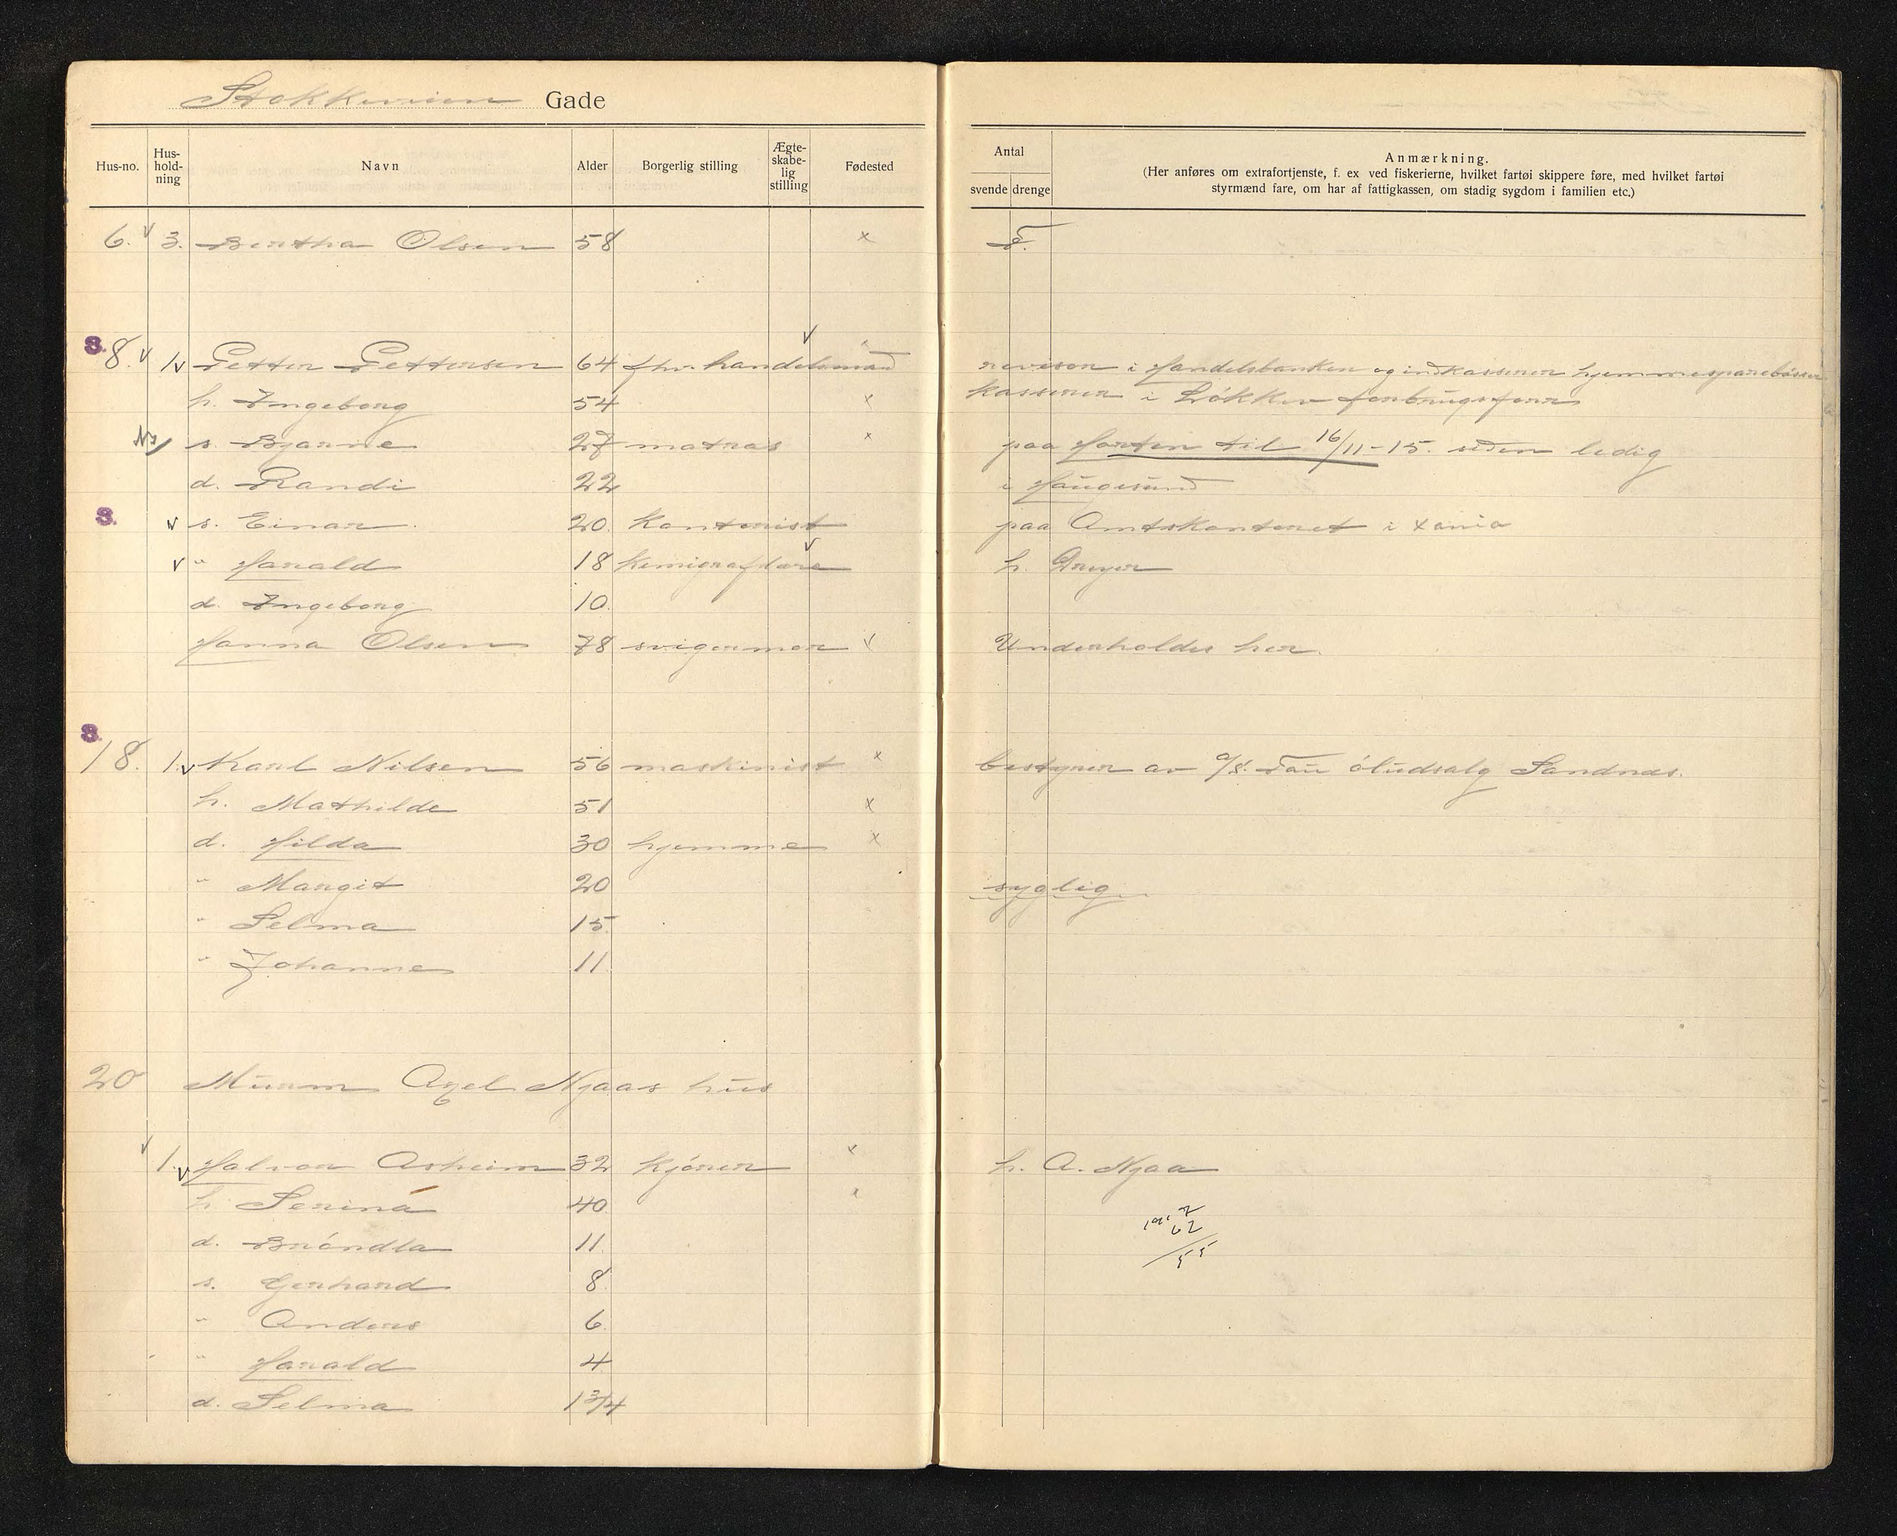 Stokkeveien Gade
Hus-no. Hus-hold-ning Navn Alder Borgerlig stilling Ægte-skabe-lig stilling Fødested
Antal svende drenge
Anmærkning.
(Her anføres om extrafortjenste, f. ex ved fiskerierne, hvilket fartøi skippere føre, med hvilket fartøi
styrmænd fare, om har af fattigkassen, om stadig sygdom i familien etc.)
6. v 3. Bertha Olsen 58 x
S. 8 v 1 v Petter Pettersen 64 fhv. handelsmand v revisor i Handelsbanken og indkasserer hjemmesparebøsser
h. Ingeborg 54 x kasserer i Løkkev forbrugsforr
s. Bjarne 27 matros x paa Horten til 16/11-15. siden ledig
d. Randi 22 i Haugesund
S. v s. Einar 20. kontorist paa Amtskontoret i Xania
v " Harald 18 kemigraflære v h. Dreyer
d. Ingeborg 10.
Hanna Olsen 78 svigermor v Underholdes her.
S. 18. 1. v Karl Nilsen 56 maskinist x bestyrer av a/s. Tau øludsalg Sandnes.
h. Mathilde 51 x
d. Hilda 30 hjemme x
" Margit 20 syglig
" Selma 15.
" Johanne 11
20 Murm Axel Njaas hus
v 1. v Halvor Asheim 32 kjører x h. A. Njaa
h. Serina 40. x
d. Brøndla 11.
s. Gerhard 8.
" Anders 6.
" Harald 4
d. Selma 1 3/4
62
55